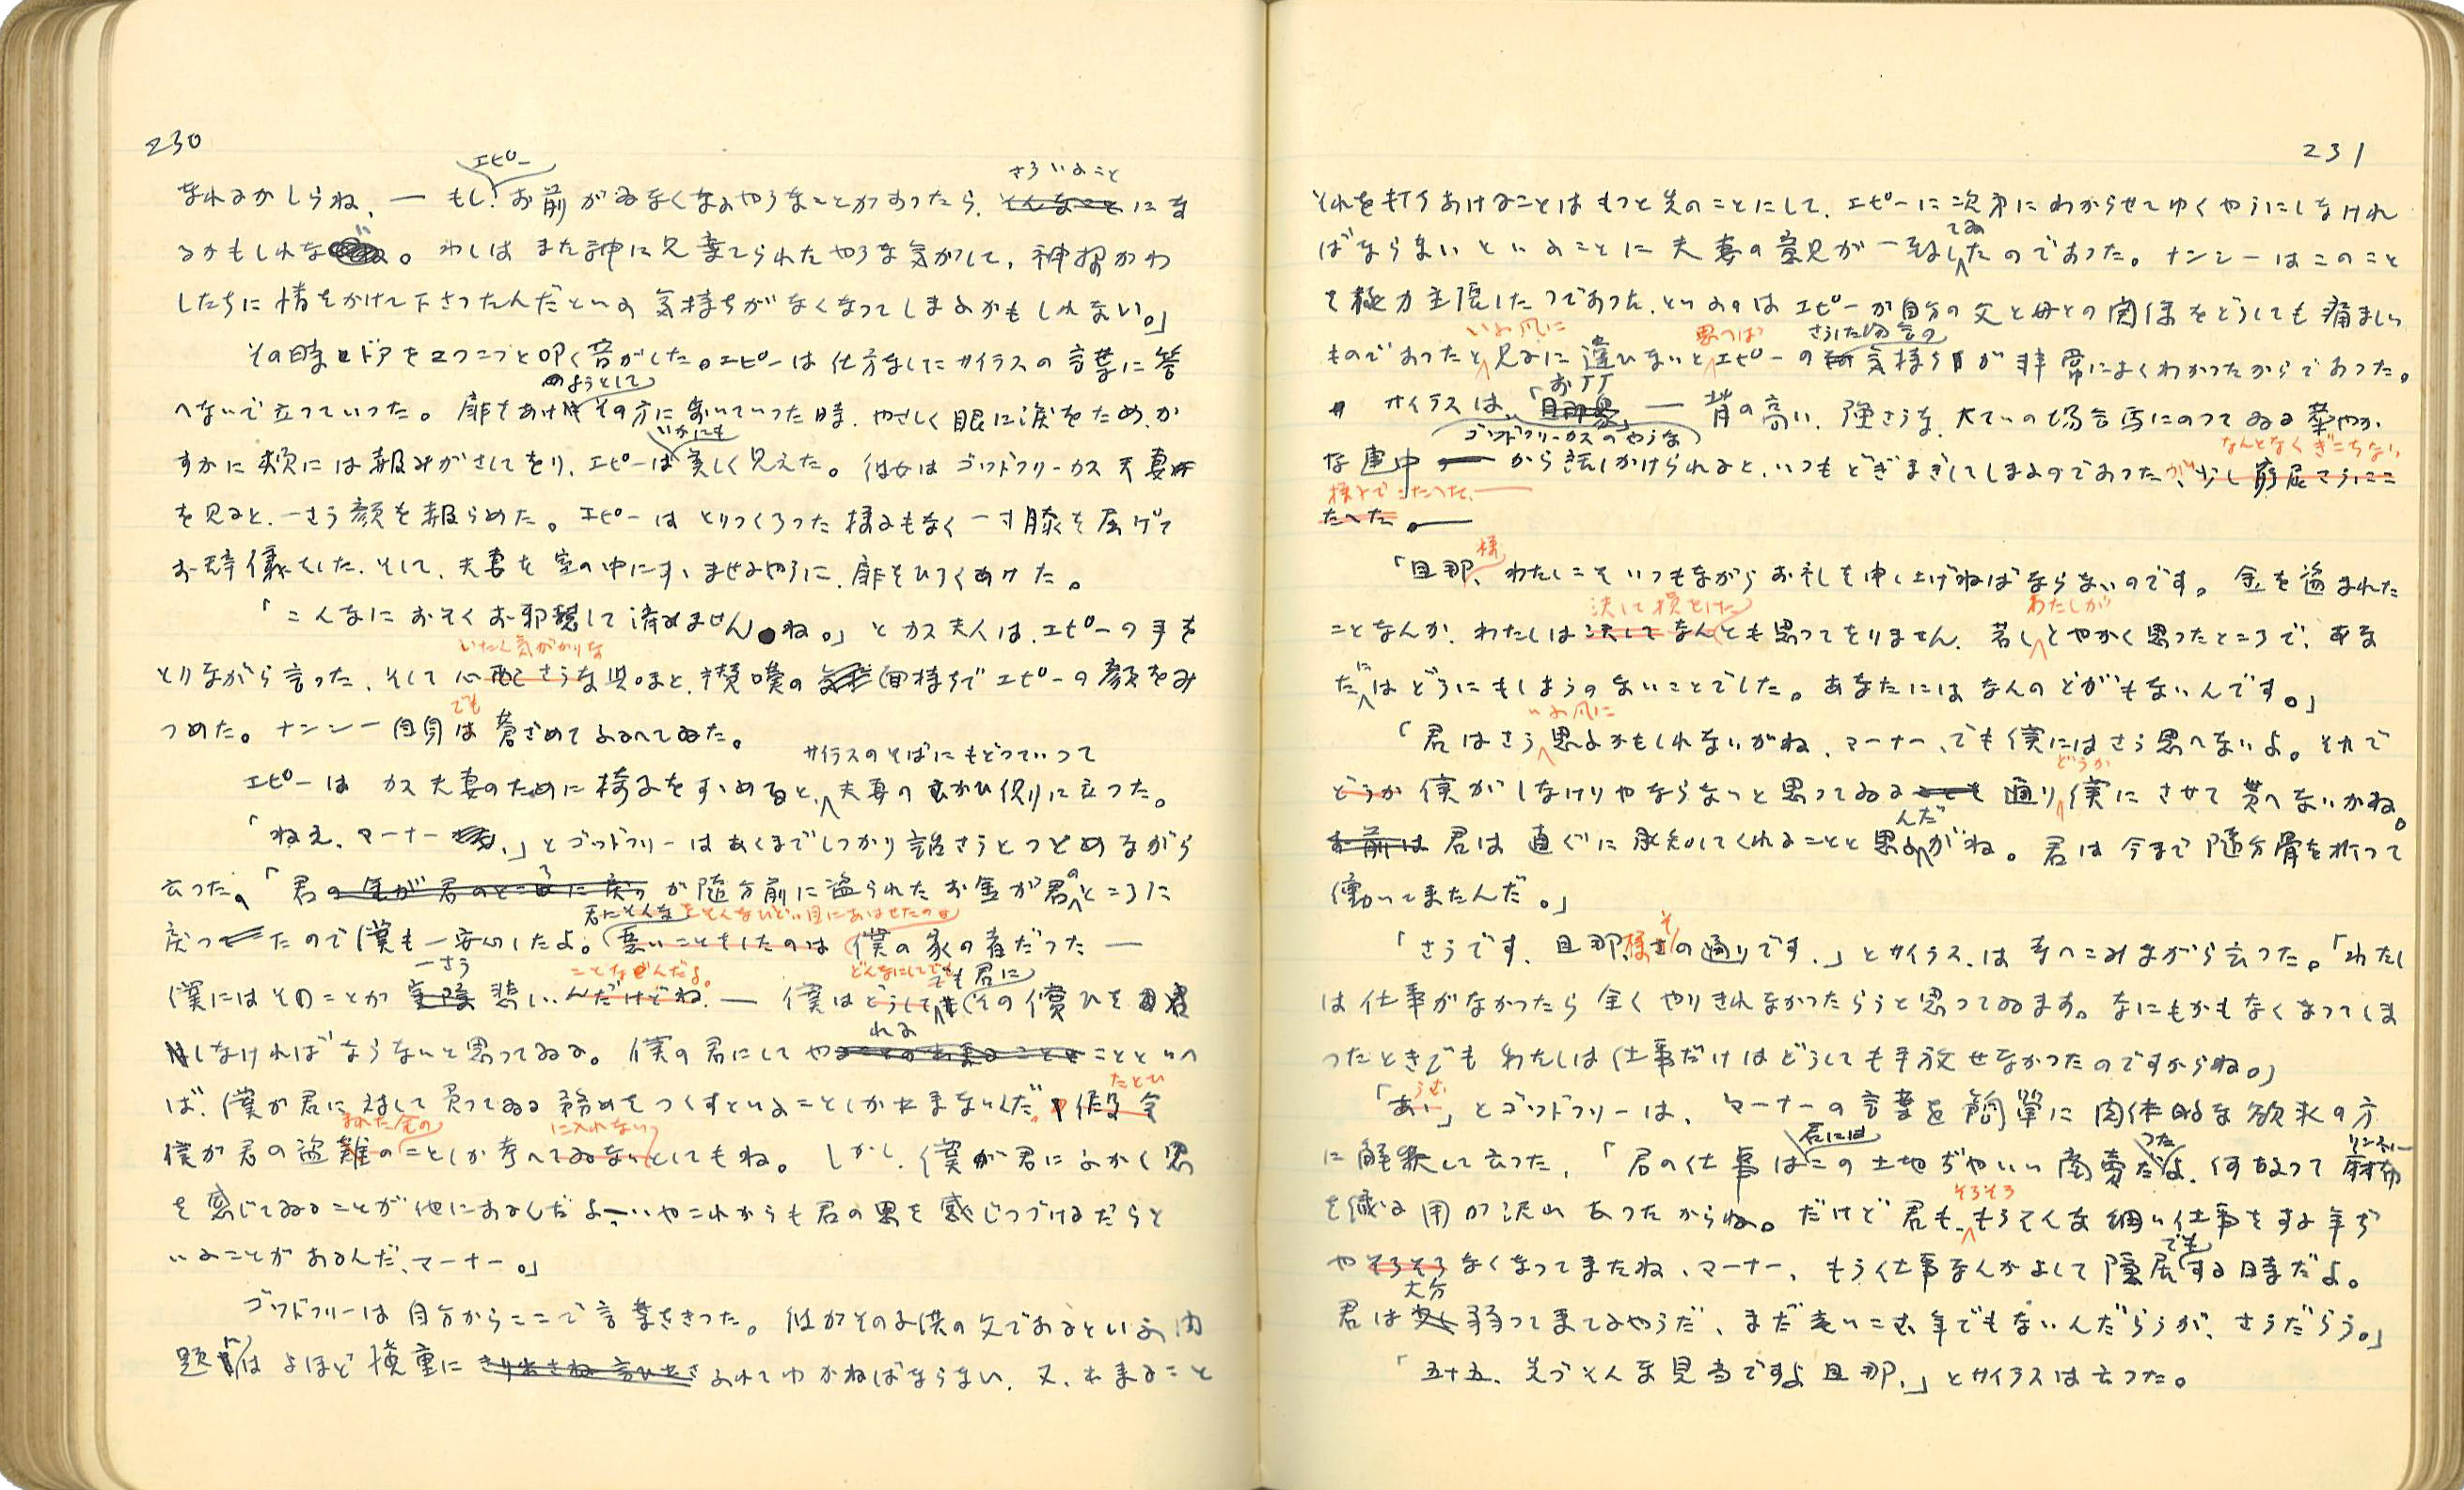 230
なれるかしらね、— もし、エピー お前がゐなくなるやうなことがあつたら、さういふこと そんなこと にな
るかもしれない。わしはまた神に見棄てられたやうな気がして、神様がわ
したちに情をかけて下さつたんだといふ気持ちがなくなつてしまふかもしれない。」
その時ドアをコツコツと叩く音がした。エピーは仕方なしにサイラスの言葉に答
へないで立つていつた。扉をあけようとしてその方に歩いていつた時、やさしく眼に涙をため、か
すかに頬には赧みがさしてをり、エピーはいかにも美しく見えた。彼女はゴッドフリーカス夫妻
を見ると、一さう顔を赧らめた。エピーはとりつくろつた様子もなく一寸膝を屈げて
お辞儀をした、そして、夫妻を室の中にすゝませるやうに、扉をひろくあけた。
「こんなにおそくお邪魔して済みませんね。」とカス夫人は、エピーの手を
いたく気がかりな
とりながら言つた、そして心配さうな興味と、讃嘆の面持ちでエピーの顔をみ
でも
つめた。ナンシー自身は蒼ざめてふるへてゐた。
サイラスのそばにもどつていつて
エピーはカス夫妻のために椅子をすゝめると、夫妻のむかひ側に立つた。
「ねえ、マーナー、」とゴッドフリーはあくまでしつかり話さうとつとめながら
云つた。「君の金が君のところに戻り が随分前に盗られたお金が君のところに
君にそんな をそんなひどい目にあはせたのは
戻つたので僕も一安心したよ。悪いことをしたのは僕の家の者だつた —
一さう ことなんだよ。 どんなにしてでも でも君に
僕にはそのことが実際悲しいんだけどね。— 僕はどうしてもその償ひを君
れる
しなければならないと思つてゐる。僕の君にしてやることといへ
たとひ
ば、僕が君に対して負つてゐる務めをつくすといふことしか出来ないんだ。假令
まれた金の に入れない
僕が君の盗難のことしか考へてゐないとしてもね。しかし、僕が君にふかく恩
を感じてゐることが他にあるんだよ—いやこれからも君の恩を感じつづけるだらうと
いふことがあるんだ、マーナー。」
ゴッドフリーは自分からここで言葉をきつた。彼がその子供の父であるといふ問
題にはよほど慎重にふれてゆかねばならない、又、出来ること
231
それを打ちあけることはもつと先のことにして、エピーに次第にわからせてゆくやうにしなけれ
てゐ
ばならないといふことに夫妻の意見が一致したのであつた。ナンシーはこのこと
を極力主張したのであつた、といふのはエピーが自分の父と母との関係をどうしても痛ましい
いふ風に 思へば さうした場合の
ものであつたと見るに違ひないとエピーの気持ちが非常によくわかつたからであつた。
サイラスは、「お上」 旦那衆 — 背の高い、強さうな、大ていの場合馬にのつてゐる華やか
ゴッドフリーカスのやうな なんとなくぎこちない
な連中 から話しかけられると、いつもどぎまぎしてしまふのであつたが、少し窮屈さうにこ
様子でこたへた、—
たへた。—
「旦那様、わたしこそいつもながらお礼を申し上げねばならないのです。金を盗まれた
決して損をした わたしが
ことなんか、わたしは決してなんとも思つてをりません、若しとやかく思つたところで、あな
たにはどうにもしようのないことでした。あなたにはなんのとがもないんです。」
いふ風に
「君はさう思ふかもしれないがね、マーナー、でも僕にはさう思へないよ。それで
どうか
どうか僕がしなけりやならないと思つてゐる通り僕にさせて貰へないかね。
んだ
お前は君は直ぐに承知してくれることと思ふがね。君は今まで随分骨を折つて
働いてきたんだ。」
「さうです、旦那様、その通りです、」とサイラスは考へこみながら云つた。「わたし
は仕事がなかつたら全くやりきれなかつたらうと思つてゐます。なにもかもなくなつてしま
つたときでもわたしは仕事だけはどうしても手放せなかつたのですからね。」
うむ
「あゝ」とゴッドフリーは、マーナーの言葉を簡単に肉体的な欲求の方
君には つた リンネル
に解釈して云つた、「君の仕事はこの土地ぢやいい商売だよ、何故つて麻布
そろそろ
を織る用が沢山あつたからね。だけど君も、もうそんな細い仕事をする年ぢ
でも
やそろそろなくなつてきたね、マーナー、もう仕事なんかよして隠居する時だよ。
大分
君は少し弱つて来てるやうだ、まだ老いこむ年でもないんだらうが、さうだらう。」
「五十五、先づそんな見当ですよ旦那、」とサイラスは云つた。